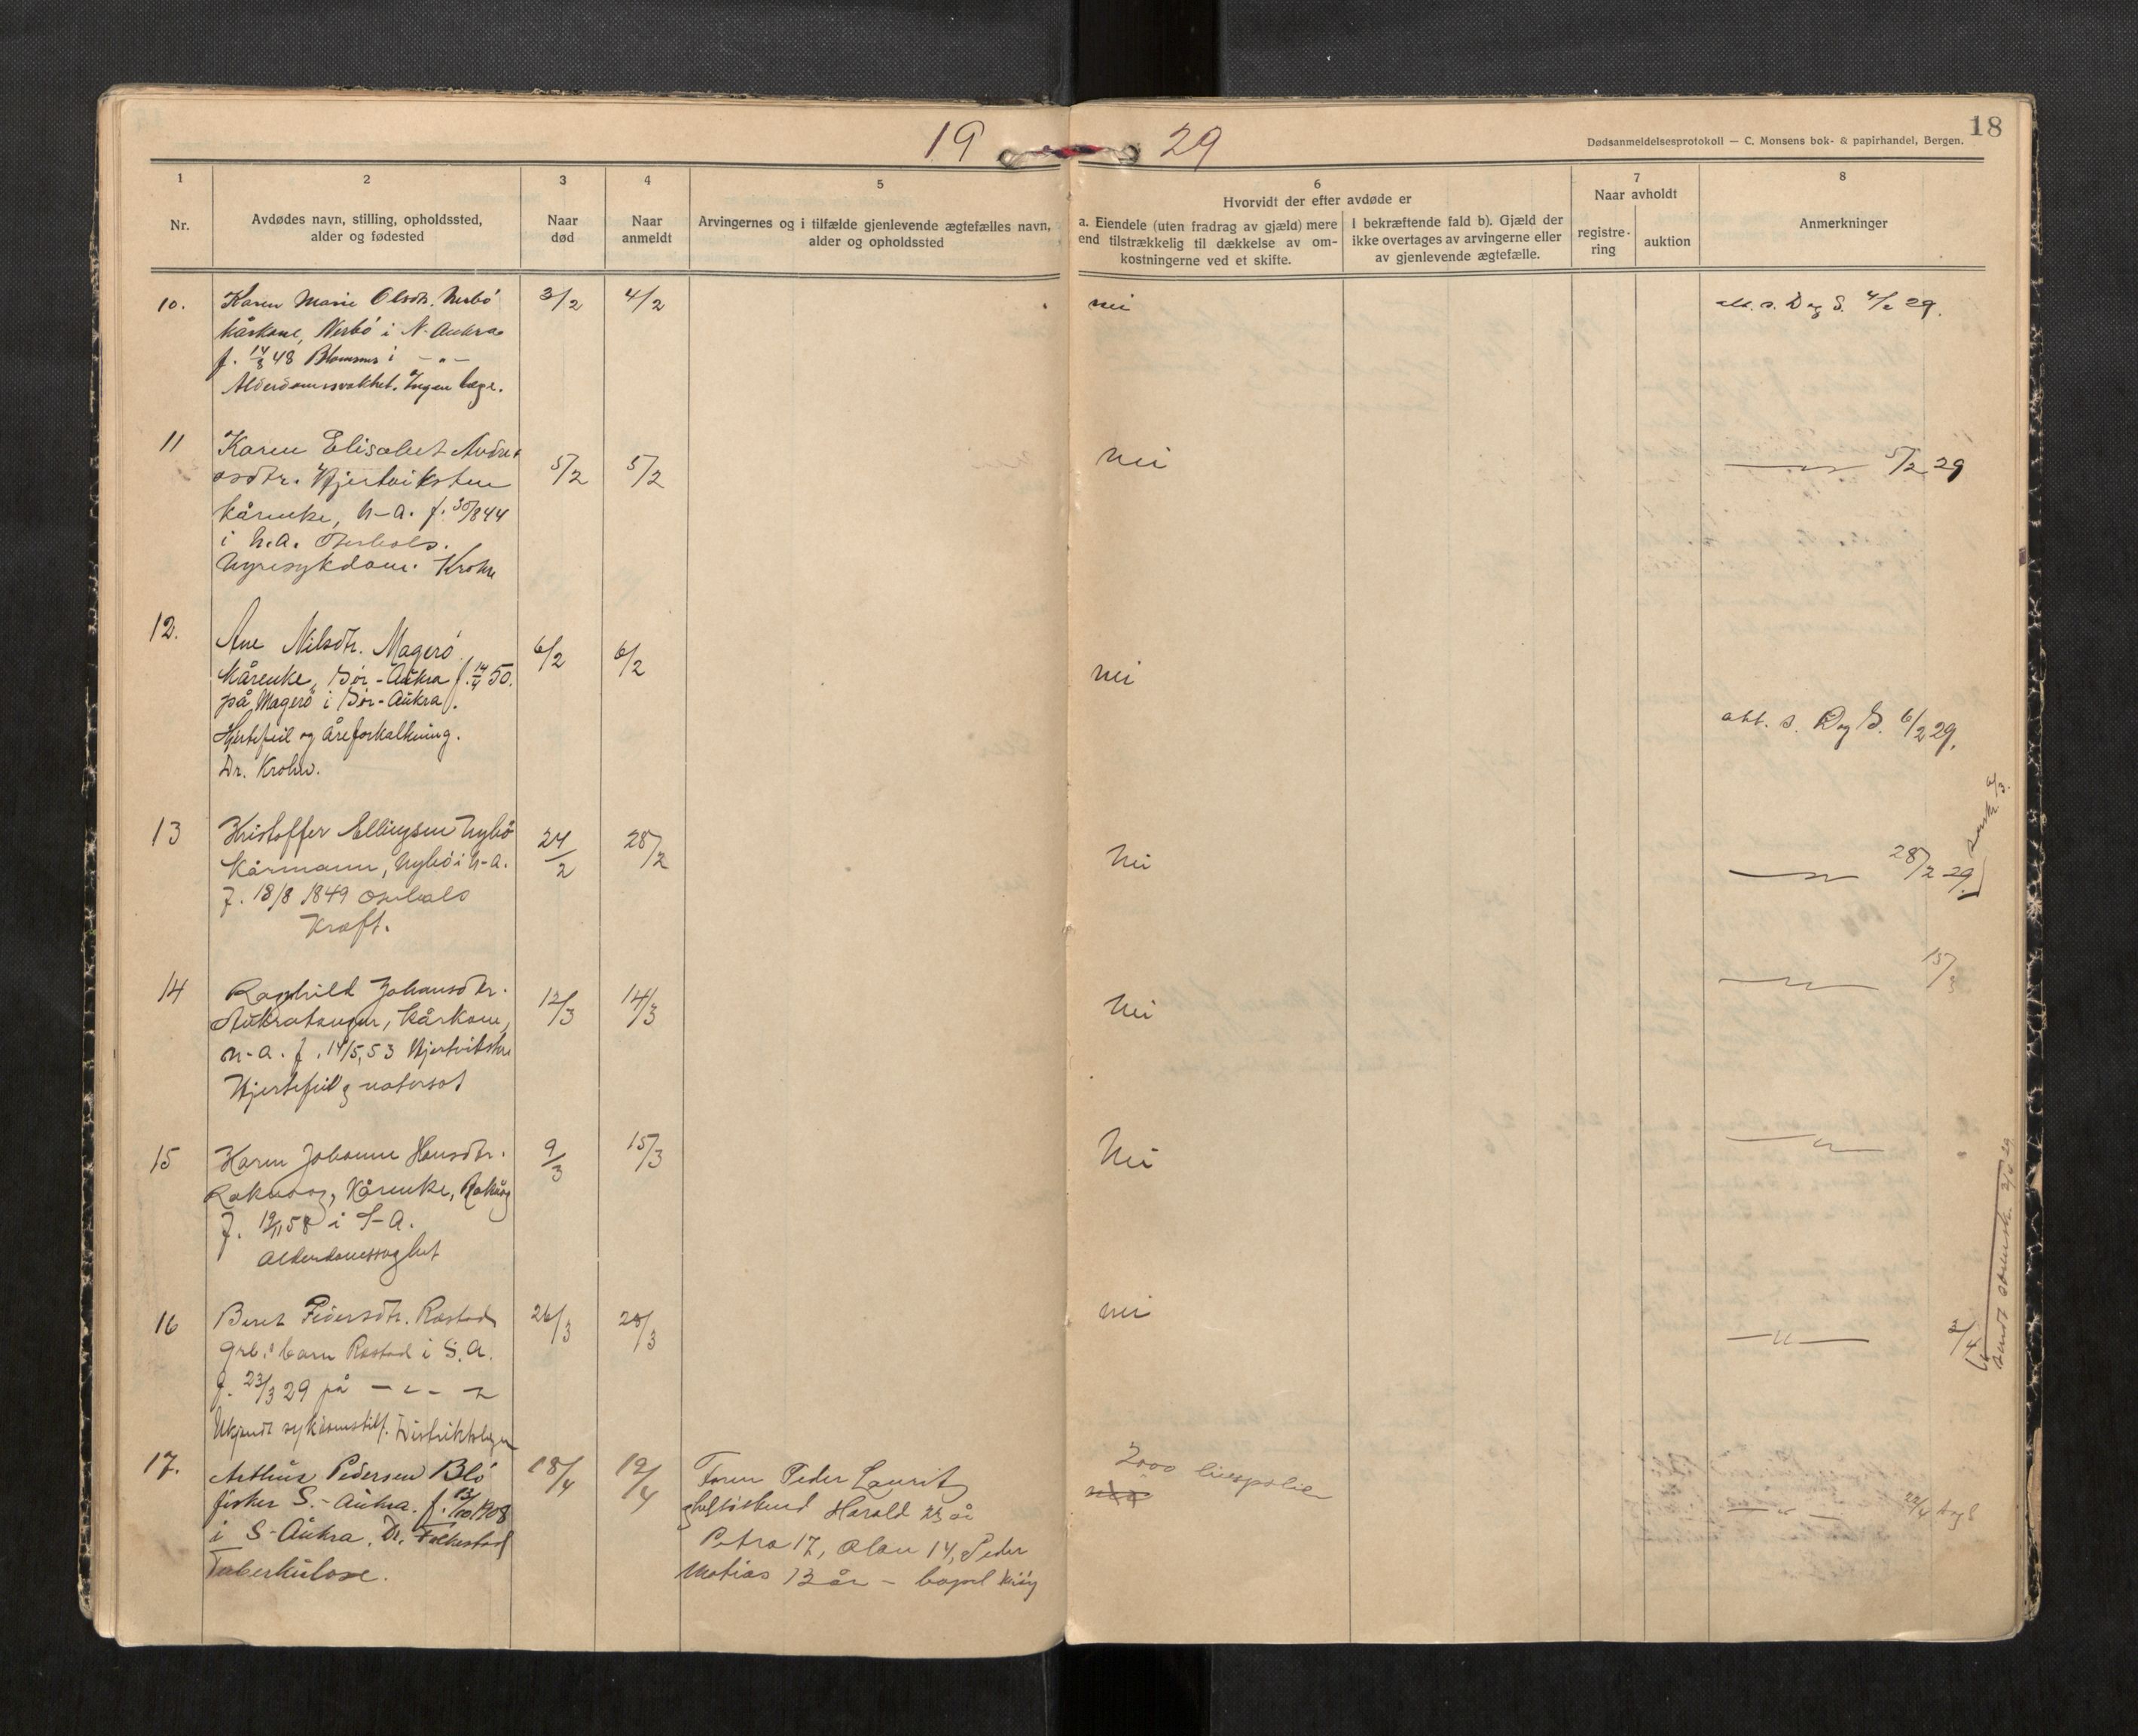 19 29
18
Dødsanmeldelsesprotokoll — C. Monsens bok- & papirhandel, Bergen.
1
Nr.
2
Avdødes navn, stilling, opholdssted,
alder og fødested
3
Naar
død
4
Naar
anmeldt
5
Arvingernes og i tilfælde gjenlevende ægtefælles navn,
alder og opholdssted
6
Hvorvidt der efter avdøde er
a. Eiendele (uten fradrag av gjæld) mere
end tilstrækkelig til dækkelse av om-
kostningerne ved et skifte.
I bekræftende fald b). Gjæld der
ikke overtages av arvingerne eller
av gjenlevende ægtefælle.
7
Naar avholdt
registre-
ring
auktion
8
Anmerkninger
10. Karen Marie Olsdtr. Nerbö 3/2 4/2 nei att. s. D og S. 4/2 29.
kårkone, Nerbö i N. Aukra
f. 14/3 48 i — " —
Alderdomssvakhet. Ingen læge.
11 Karen Elisabet Andre- 5/2 5/2 nei — " — 5/2 29
asdtr. Hjertviksten
kårenke, N-A. f. 30/8 44
i N.A.
Nyresykdom. Krohn
12. Ane Nilsdtr. Magerö 6/2 6/2 nei att. s. D og S. 6/2 29.
kårenke, Sör-Aukra f. 14/4 50.
på Magerö i Sör-Aukra.
Hjertefeil og åreforkalkning.
Dr. Krohn.
13 Kristoffer Ellingsen Nybö 24/2 28/2 Nei — " — 28/2 29.
Kårmann, Nybö i N-A.
f. 18/8 1849
Kræft.
14 Ragnhild Johansdtr. 12/3 14/3 Nei — " — 15/3
Aukratangen, kårkone,
N-A. f. 14/5, 53 Hjertvikstn
Hjertefeil og vatersot
15 Karen Johanne Hansdtr. 9/3 15/3 Nei — " —
Rakvaag, Kårenke, Rakvåg
f. 19/11 58 i S-A.
Alderdomssvaghet
16 Beret Pedersdtr. Rastad 26/3 28/3 nei — " — 3/4
grb.s barn Rastad i S.A.
f. 23/3 29 på — " —
Ukjendt sykdomstilf. Distriktslegen
17. Arthur Pedersen Blö 18/4 19/4 Faren Peder Laurits 2000 livspolise — " — 22/4
fisker S.-Aukra. f. 13/10 1908 helsöskend Harald 23 år
i S-Aukra. Dr. Falkestad Petra 17, Olav 14, Peder
Tuberkulose. Matias 13 år —